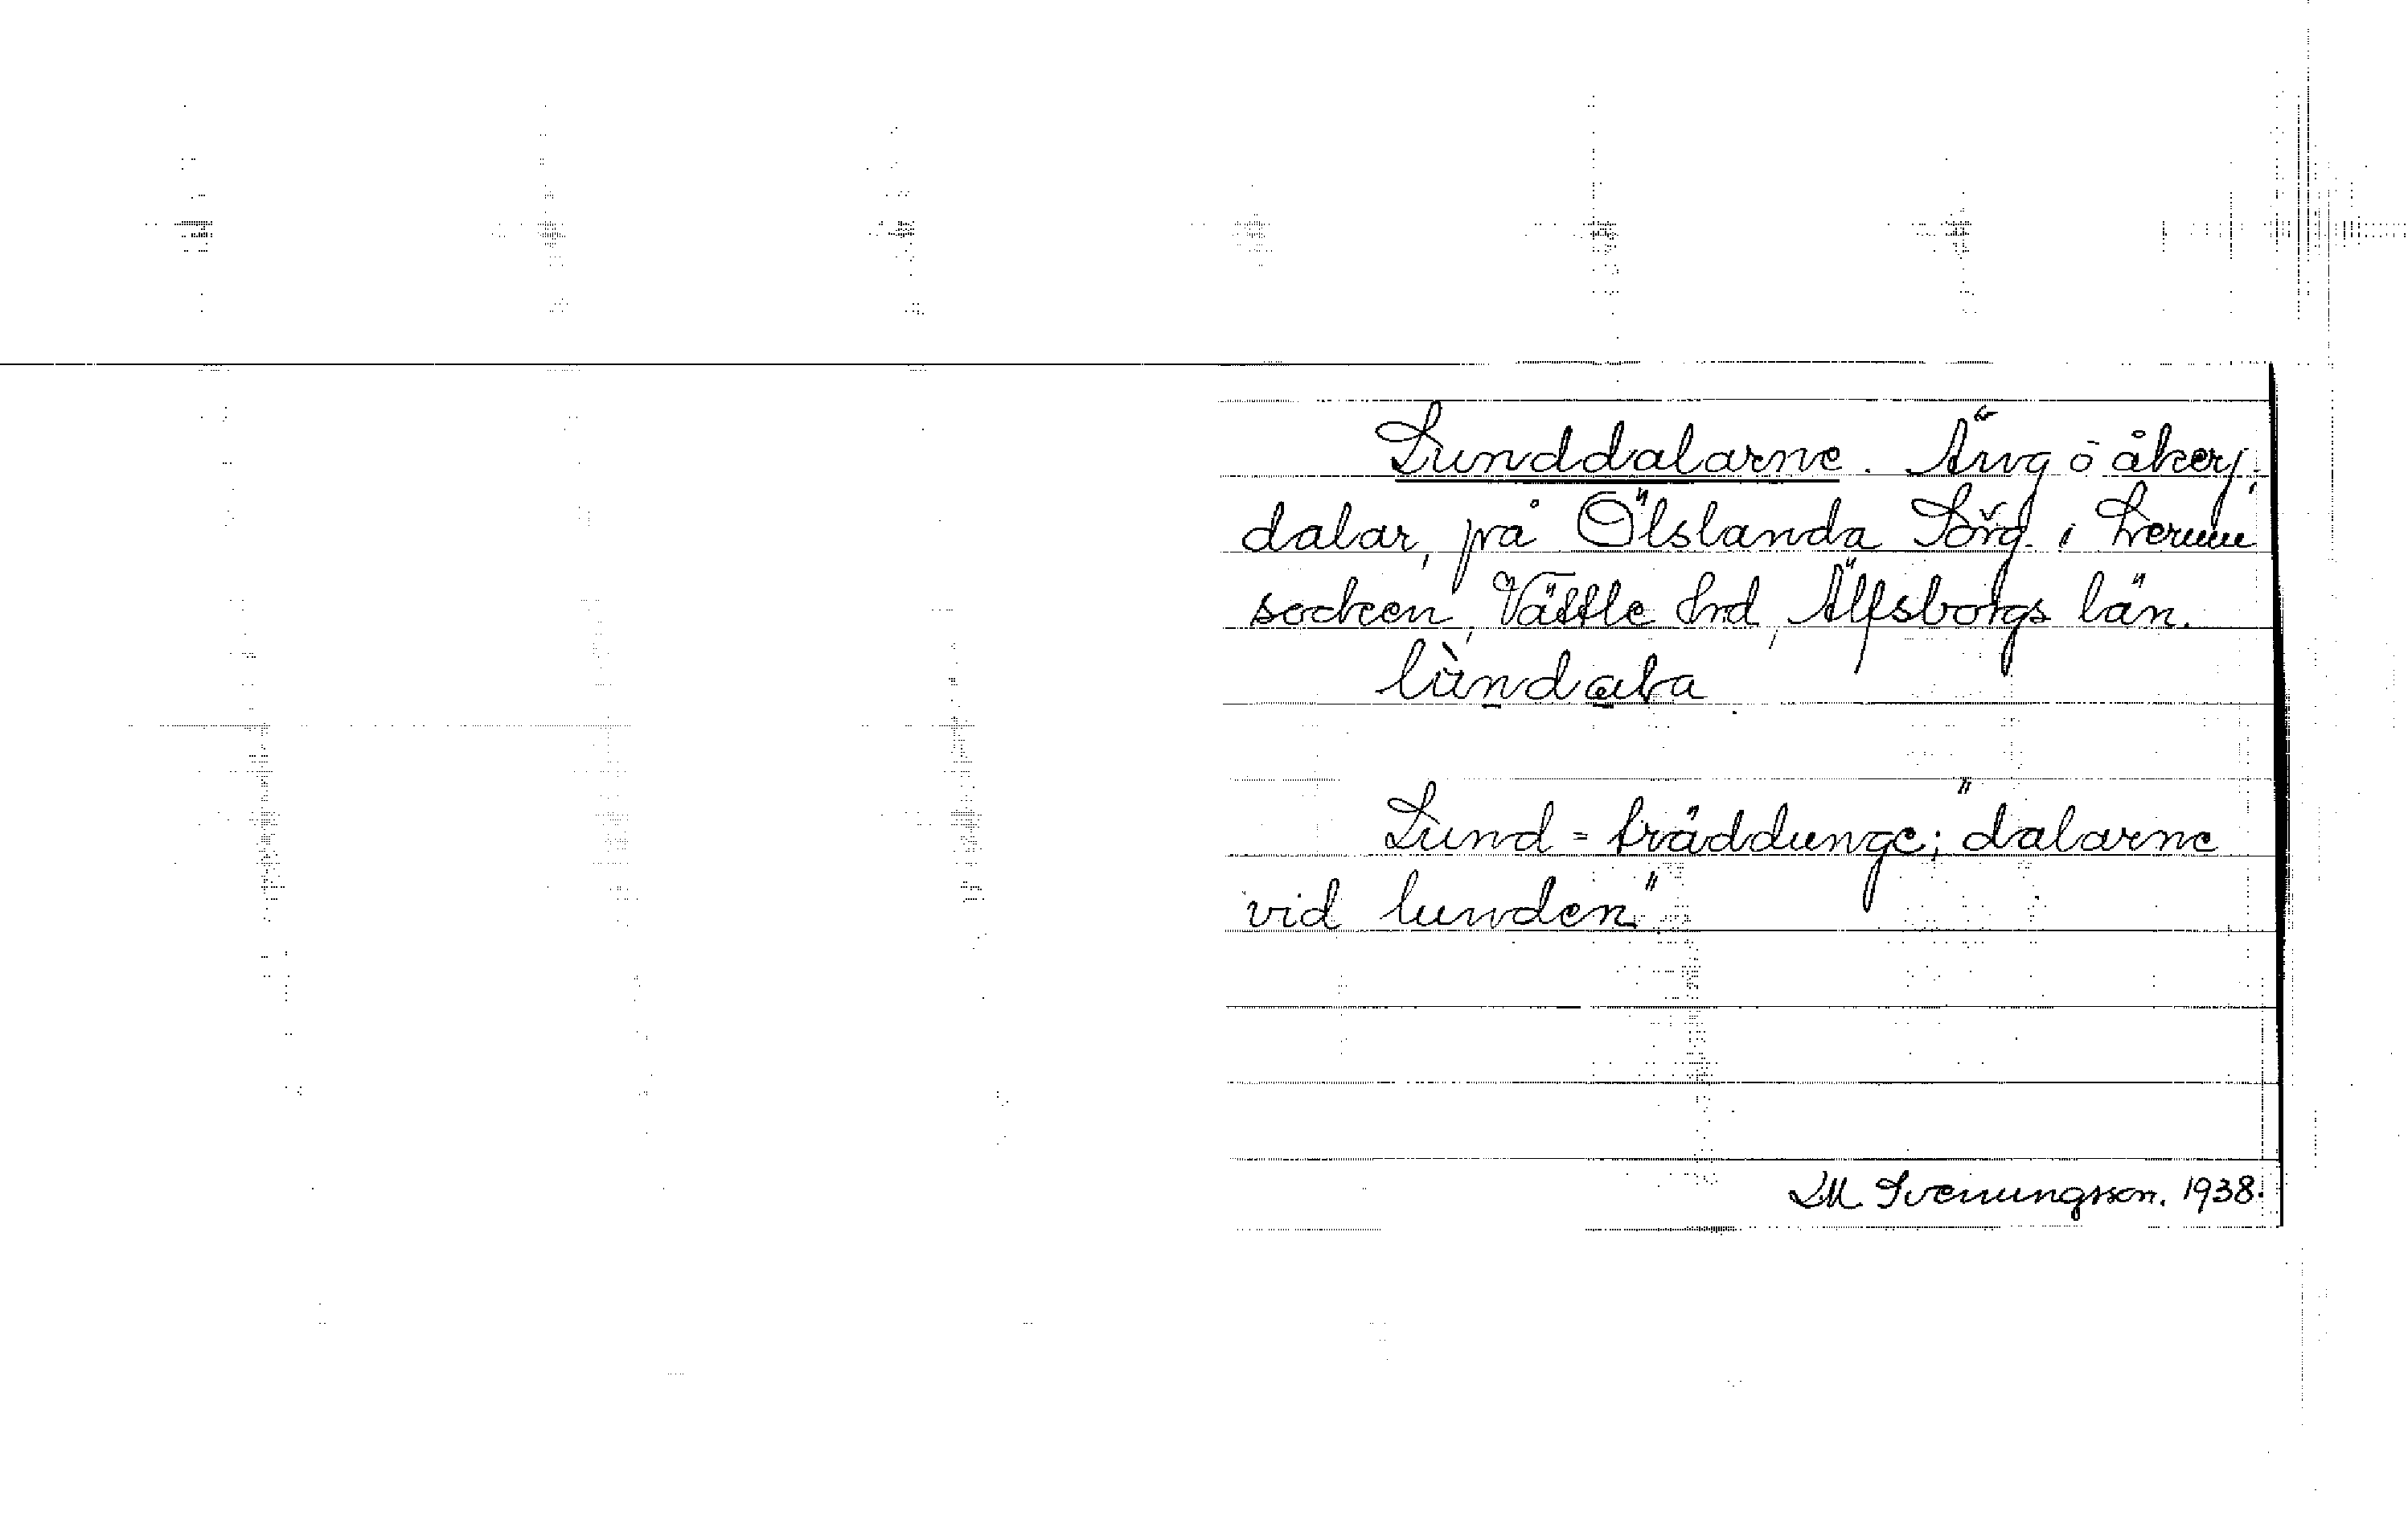 Lunddalarne. Äng o åker,
dalar, på Ölslanda Sörg. i Lerum
socken, Vättle hrd, Älfsborgs län.
lùndaɫa
Lund = träddunge; "dalarne
vid lunden"
LM Svenungsson. 1938.